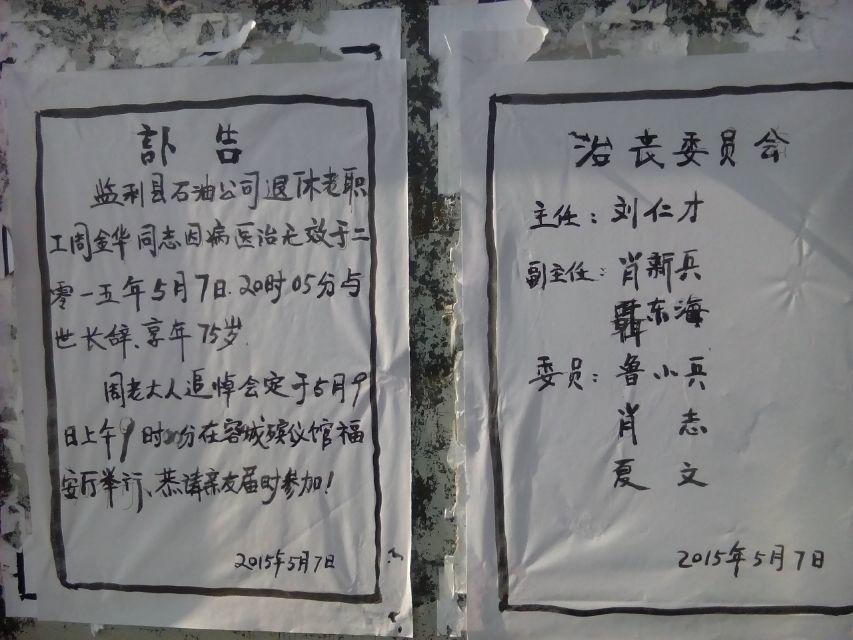 訃 告
监利县石油公司退休老职
工周金华同志因病医治无效于二
零一五年5月7日.20时05分与
世长辞、享年75岁.
周老大人追悼会定于5月9
日上午9时 分在容城殡仪馆福
安厅举行、恭请亲友届时参加!
2015年5月7日
治丧委员会
主任:刘仁才
副主任:肖新兵
东海
委员:鲁小兵
肖 志
夏 文
2015年5月7日